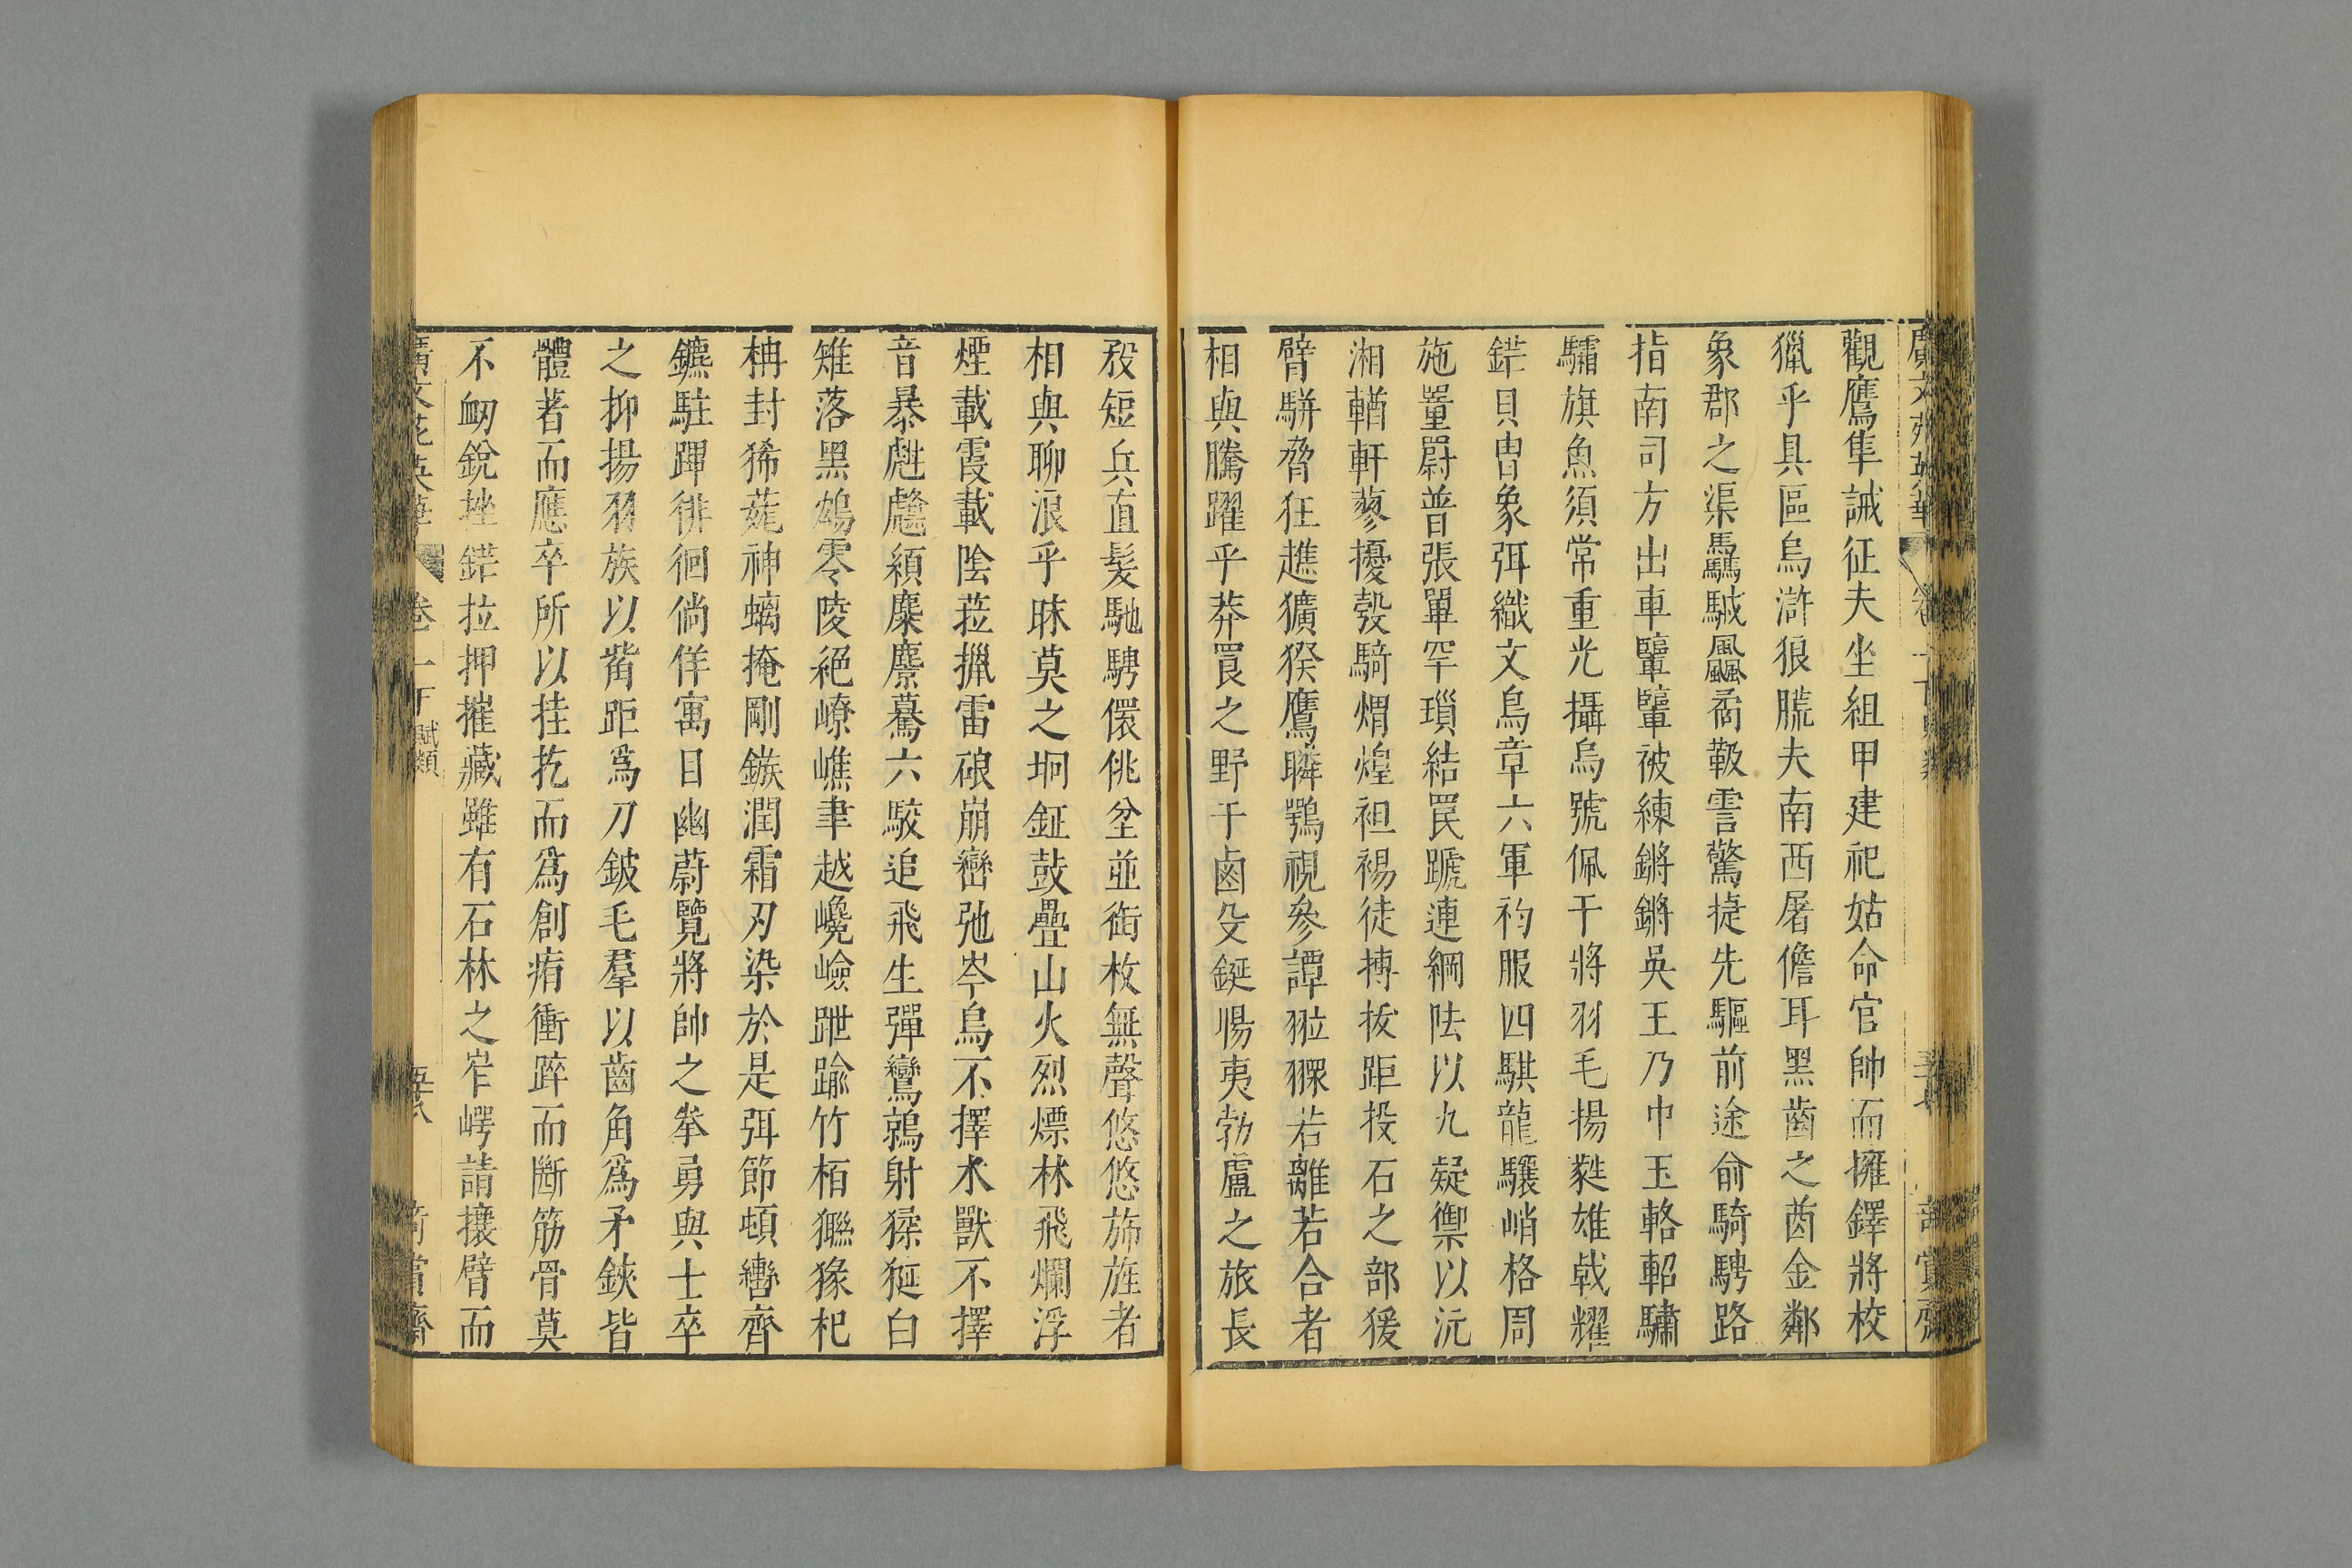 觀鷹隼誡征夫坐組甲建祀姑命官帥而擁鐸將校
獵乎具區烏滸狼䑃夫南西屠儋耳黑齒之酋金鄰
象郡之渠驫駥飍矞靸霅驚捷先驅前途俞騎騁路
指南司方出車檻檻被練鏘鏘吳王乃巾玉輅軺驌
驦旗魚須常重光攝烏號佩干將羽毛揚蕤雄戟耀
鋩貝冑象弭織文鳥章六軍袀服四騏龍驤峭格周
施罿罻普張罼罕瑣結罠蹏連綱阹以九疑禦以沅
湘輶軒蓼擾彀騎煒煌袒裼徒搏拔距投石之部猨
臂駢脅狂趭獷猤鷹瞵鶚視參譚翋𦒢若離若合者
相與騰躍乎莽罠之野干鹵殳鋋暘夷勃盧之旅長
殳短兵直髮馳騁儇佻坌並銜枚無聲悠悠斾旌者
相與聊浪乎昧莫之坰鉦鼓疊山火烈熛林飛爛浮
煙載霞載陰菈擸雷硠崩巒弛岑鳥不擇木獸不擇
音暴甝虪䋶麋麖驀六駮追飛生彈鸞鶁射猱狿白
雉落黑鴆零陵絕嶛嶕聿越巉嶮跇踰竹栢獵猭杞
柟封狶蓷神螭掩剛鏃潤霜刃染於是弭節頓轡齊
鑣駐蹕徘徊倘佯寓目幽蔚覽將帥之拳勇與士卒
之抑揚羽族以觜距爲刀鈹毛羣以齒角爲矛鋏皆
體著而應卒所以挂扢而爲創痏衝踤而斷筋骨莫
不衄銳挫鋩拉押摧藏雖有石林之岝崿請攘臂而
廣文苑英華 卷二十 賦類 五十八 奇賞齋